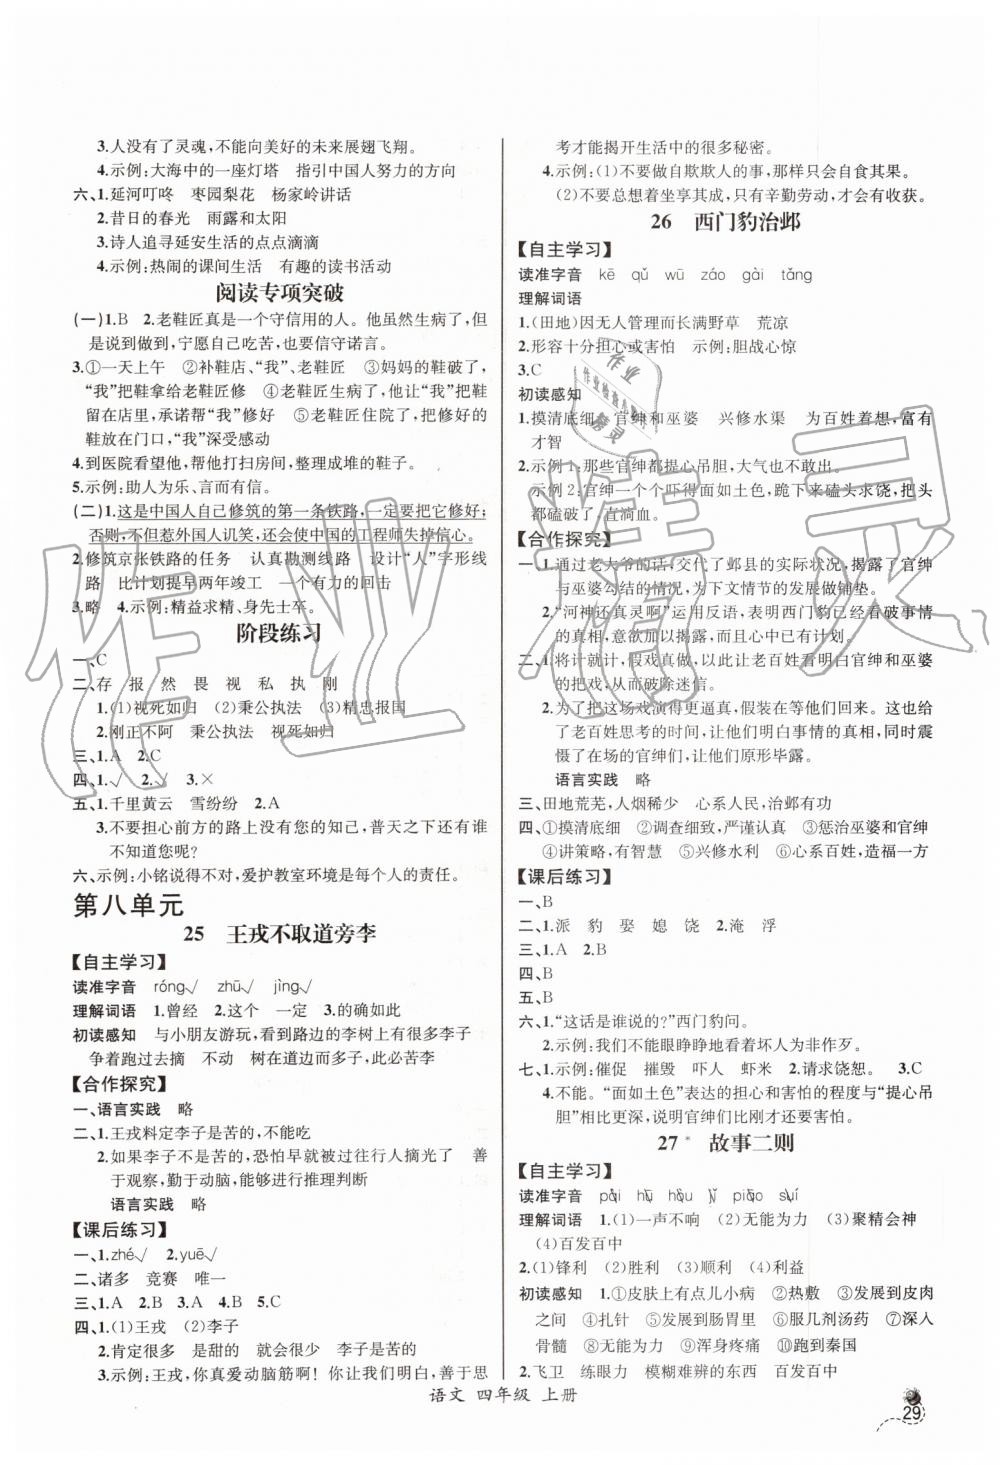 3.人没有了灵魂,不能向美好的未来展翅飞翔。
4.示例:大海中的一座灯塔 指引中国人努力的方向
六、1.延河叮咚 枣园梨花 杨家岭讲话
2.昔日的春光 雨露和太阳
3.诗人追寻延安生活的点点滴滴
4.示例:热闹的课间生活 有趣的读书活动
阅读专项突破
(一)1.B 2.老鞋匠真是一个守信用的人。他虽然生病了,但
是说到做到,宁愿自己吃苦,也要信守诺言。
3.①一天上午 ②补鞋店、“我”、老鞋匠 ③妈妈的鞋破了,
“我”把鞋拿给老鞋匠修 ④老鞋匠生病了,他让“我”把鞋
留在店里,承诺帮“我”修好 ⑤老鞋匠住院了,把修好的
鞋放在门口,“我”深受感动
4.到医院看望他,帮他打扫房间,整理成堆的鞋子。
5.示例:助人为乐、言而有信。
(二)1.这是中国人自己修筑的第一条铁路,一定要把它修好;
否则,不但惹外国人讥笑,还会使中国的工程师失掉信心。
2.修筑京张铁路的任务 认真勘测线路 设计“人”字形线
路 比计划提早两年竣工 一个有力的回击
3.略 4.示例:精益求精、身先士卒。
阶段练习
一、C
二、存 报 然 畏 视 私 执 刚
1.(1)视死如归 (2)秉公执法 (3)精忠报国
2.刚正不阿 秉公执法 视死如归
三、1.A 2.C
四、1.√ 2.√ 3.×
五、1.千里黄云 雪纷纷 2.A
3.不要担心前方的路上没有您的知己,普天之下还有谁
不知道您呢?
六、示例:小铭说得不对,爱护教室环境是每个人的责任。
第八单元
25 王戎不取道旁李
【自主学习】
读准字音 róng√ zhū√ jìng√
理解词语 1.曾经 2.这个 一定 3.的确如此
初读感知 与小朋友游玩,看到路边的李树上有很多李子
争着跑过去摘 不动 树在道边而多子,此必苦李
【合作探究】
一、语言实践 略
二、1.王戎料定李子是苦的,不能吃
2.如果李子不是苦的,恐怕早就被过往行人摘光了 善
于观察,勤于动脑,能够进行推理判断
语言实践 略
【课后练习】
一、1.zhé√ 2.yuē√
二、诸多 竞赛 唯一
三、1.A 2.B 3.A 4.B 5.C
四、1.(1)王戎 (2)李子
2.肯定很多 是甜的 是苦的
3.示例:王戎,你真爱动脑筋啊!你让我们明白,善于思
考才能揭开生活中的很多秘密。
4.示例:(1)不要做自欺欺人的事,不然只会自食其果。
(2)不要总想着坐享其成,只有辛勤劳动,才会有收获。
26 西门豹治邺
【自主学习】
读准字音 kē qǔ wū záo gài tǎng
理解词语
1.(田地)因无人管理而长满野草 荒凉
2.形容十分担心或害怕 示例:胆战心惊
3.C
初读感知
1.摸清底细 官绅和巫婆 兴修水渠 为百姓着想,富有
才智
2.示例1:那些官绅都提心吊胆,大气也不敢出。
示例2:官绅一个个吓得面如土色,跪下来磕头求饶,把头
都磕破了,直淌血。
【合作探究】
一、1.通过老大爷的话,交代了邺县的实际状况,揭露了官绅
与巫婆勾结的情况,为下文情节的发展做铺垫。
2.“河神还真灵啊”运用反语,表明西门豹已经看破事情
的真相,意欲加以揭露,而且心中已有计划。
二、1.将计就计,假戏真做,以此让老百姓看明白官绅和巫婆
的把戏,从而破除迷信。
2.为了把这场戏演得更逼真,假装在等他们回来。这也给
了老百姓思考的时间,让他们明白事情的真相,同时震
慑了在场的官绅们,让他们原形毕露。
语言实践 略
三、田地荒芜,人烟稀少 心系人民,治邺有功
四、①摸清底细 ②调查细致,严谨认真 ③惩治巫婆和官绅
④讲策略,有智慧 ⑤兴修水利 ⑥心系百姓,造福一方
【课后练习】
一、B
二、1.派 豹 娶 媳 饶 2.淹 浮
三、1.A 2.B
四、B
五、B
六、1.“这话是谁说的?”西门豹问。
2.示例:我们不能眼睁睁地看着坏人为非作歹。
七、1.示例:催促 摧毁 吓人 虾米 2.请求饶恕。 3.C
4.不能。“面如土色”表达的担心和害怕的程度与“提心吊
胆”相比更深,说明官绅们比刚才还要害怕。
27* 故事二则
【自主学习】
读准字音
理解词语 1.(1)一声不响 (2)无能为力 (3)聚精会神
(4)百发百中
2.(1)锋利 (2)胜利 (3)顺利 (4)利益
初读感知 1.①皮肤上有点儿小病 ②热敷 ③发展到皮肉
之间 ④扎针 ⑤发展到肠胃里 ⑥服几剂汤药 ⑦深入
骨髓 ⑧无能为力 ⑨浑身疼痛 ⑩跑到秦国
2.飞卫 练眼力 模糊难辨的东西 百发百中
语文 四年级 上册
29
作业精灵